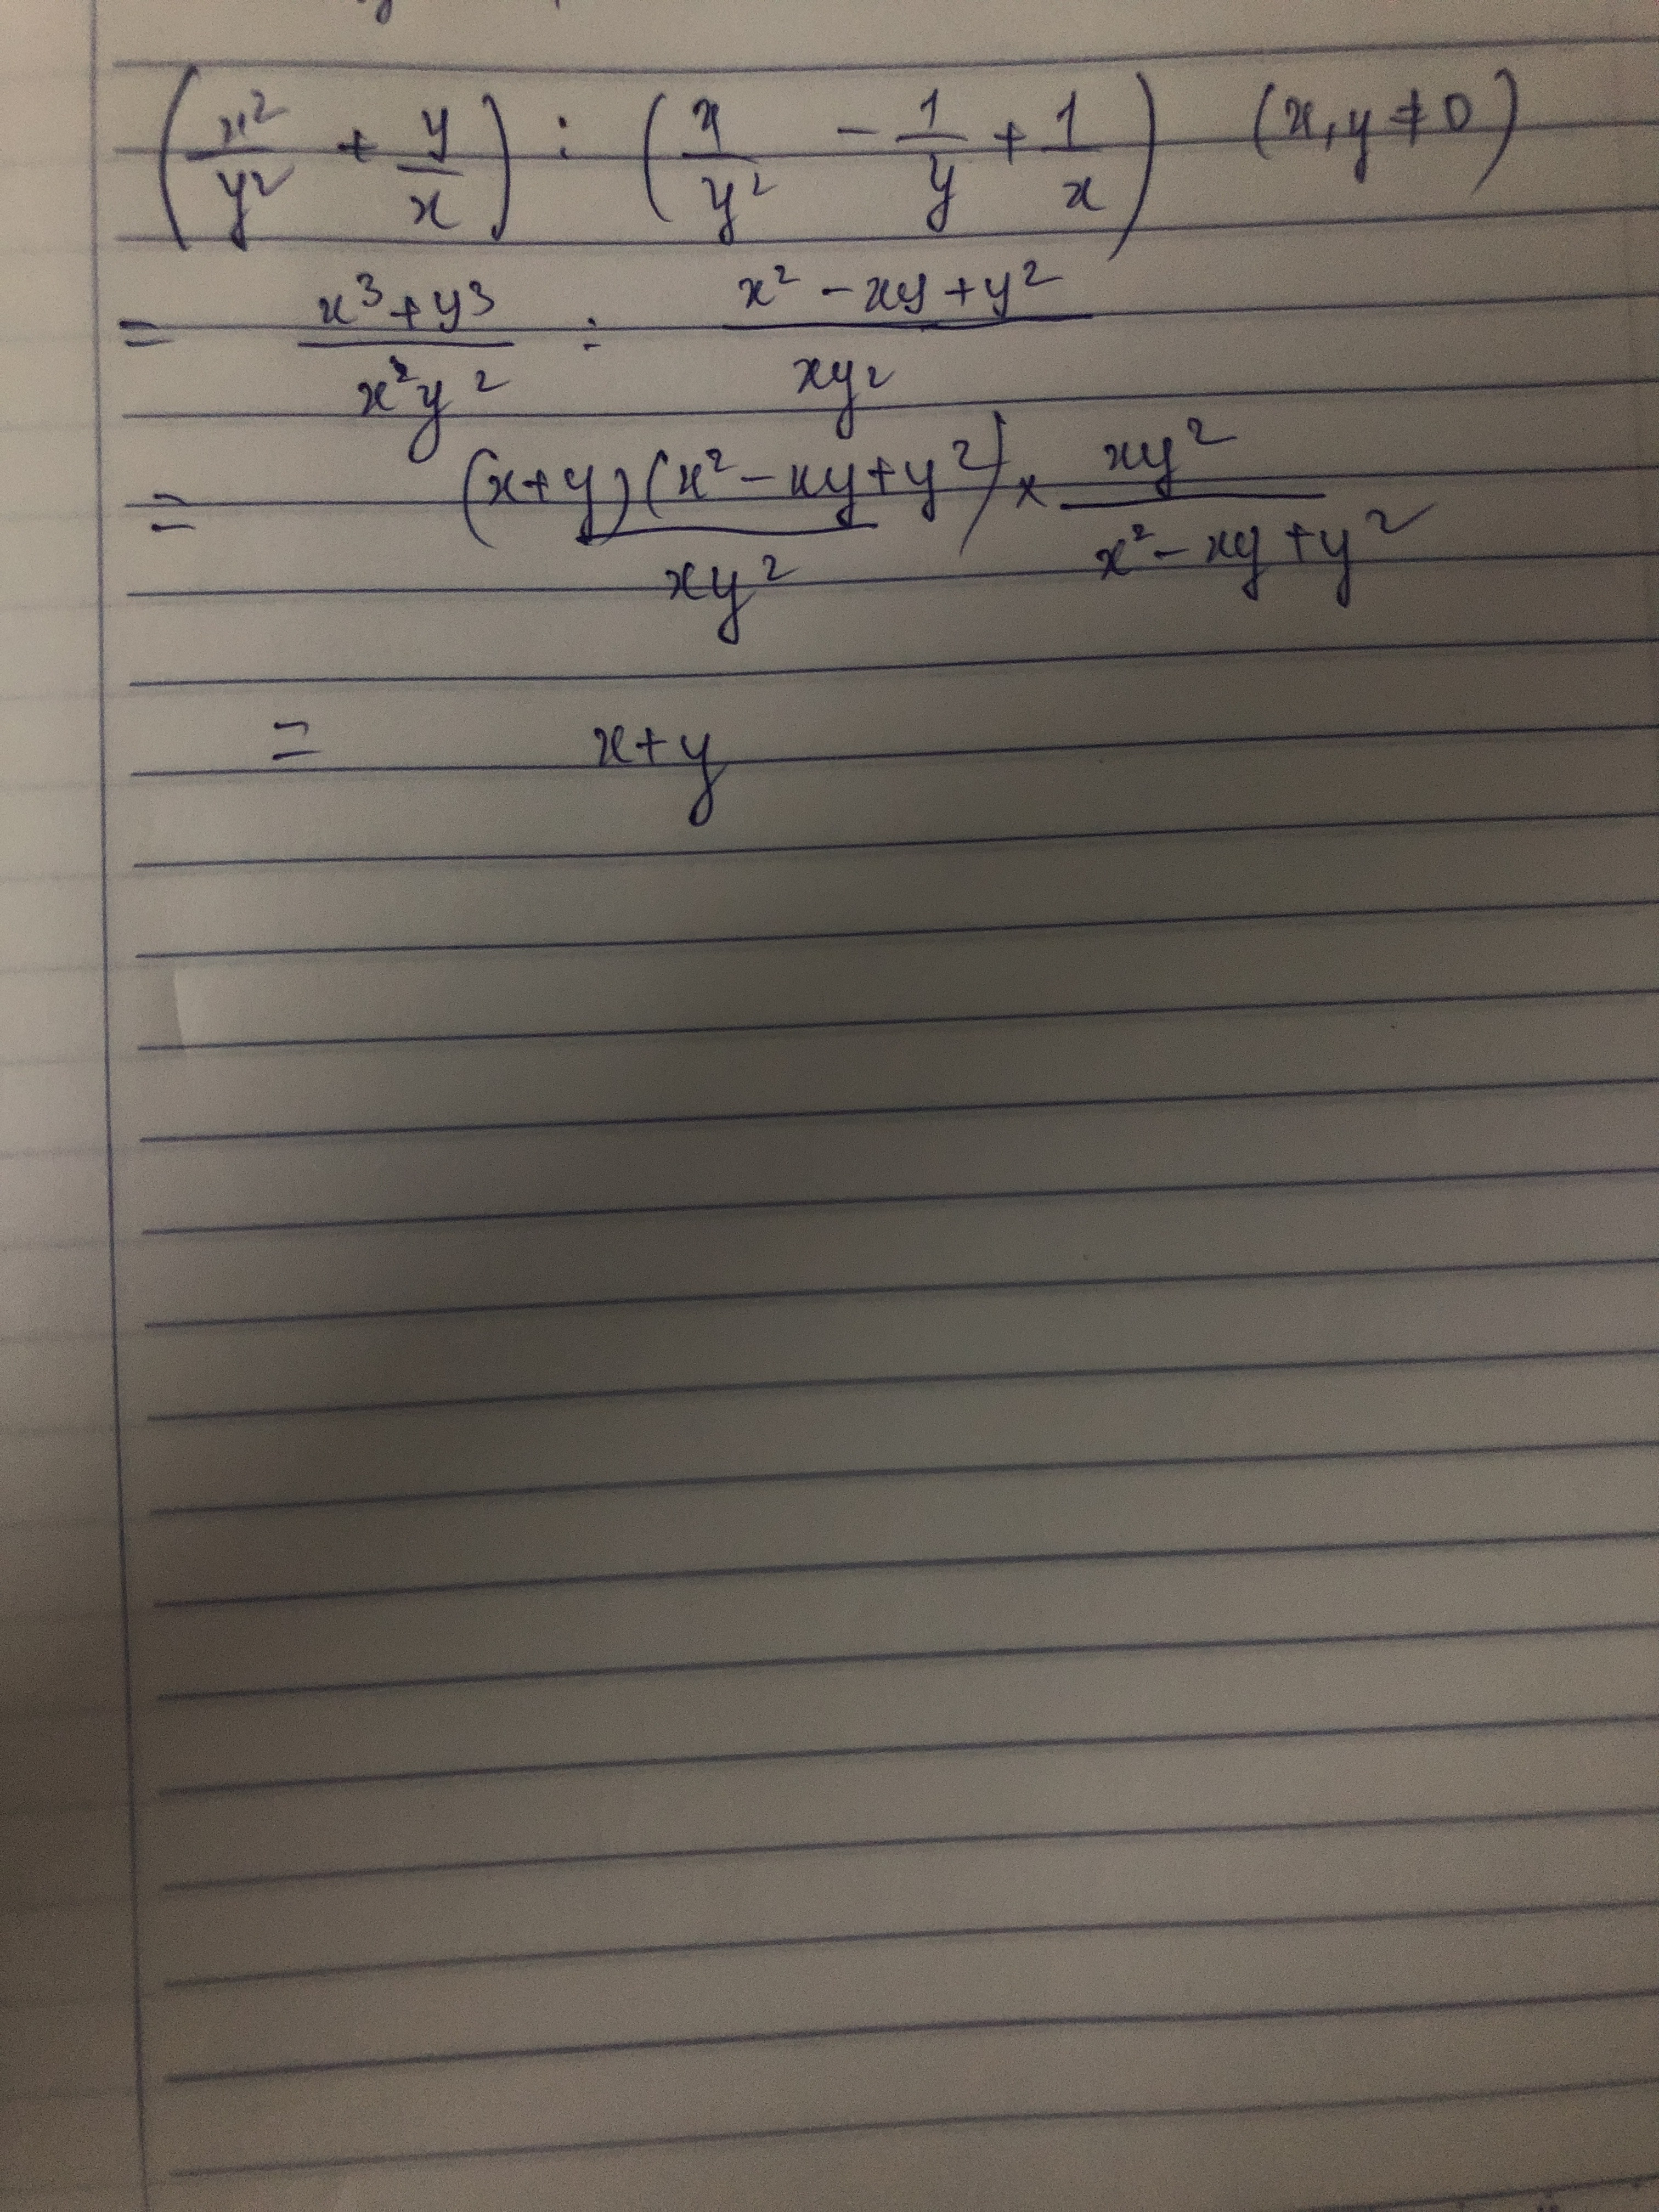 (x²/y² + y/x) : (x/y² - 1/y + 1/x) (x, y ≠ 0)
= x³+y³/x²y² : x²-xy+y²/xy²
= (x+y)(x²-xy+y²)/xy² × xy²/x²-xy+y²
= x+y